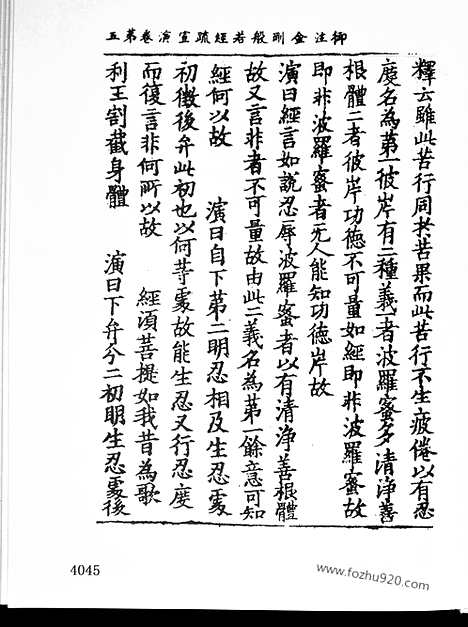 御注金剛般若經疏宣演卷第五
釋云雖此苦行同扵苦果而此苦行不生疲倦以有忍
度名為第一彼岸有二種義者波羅蜜多清淨善
根體二者彼岸功德不可量如經即非波羅蜜故
即非波羅蜜者无人能知功德岸故
演曰經言如說忍辱波羅蜜者以有清淨善根體
故又言非者不可量故由此二義名為第一餘意可知
經何以故 演曰自下第二明忍相及生忍處
初徵後弁此初也以何等處故能生忍又行忍度
而復言非何所以故 經須菩提如我昔為歌
利王割截身體 演曰下弁今二初明生忍處後
4045
www.fozhu920.com